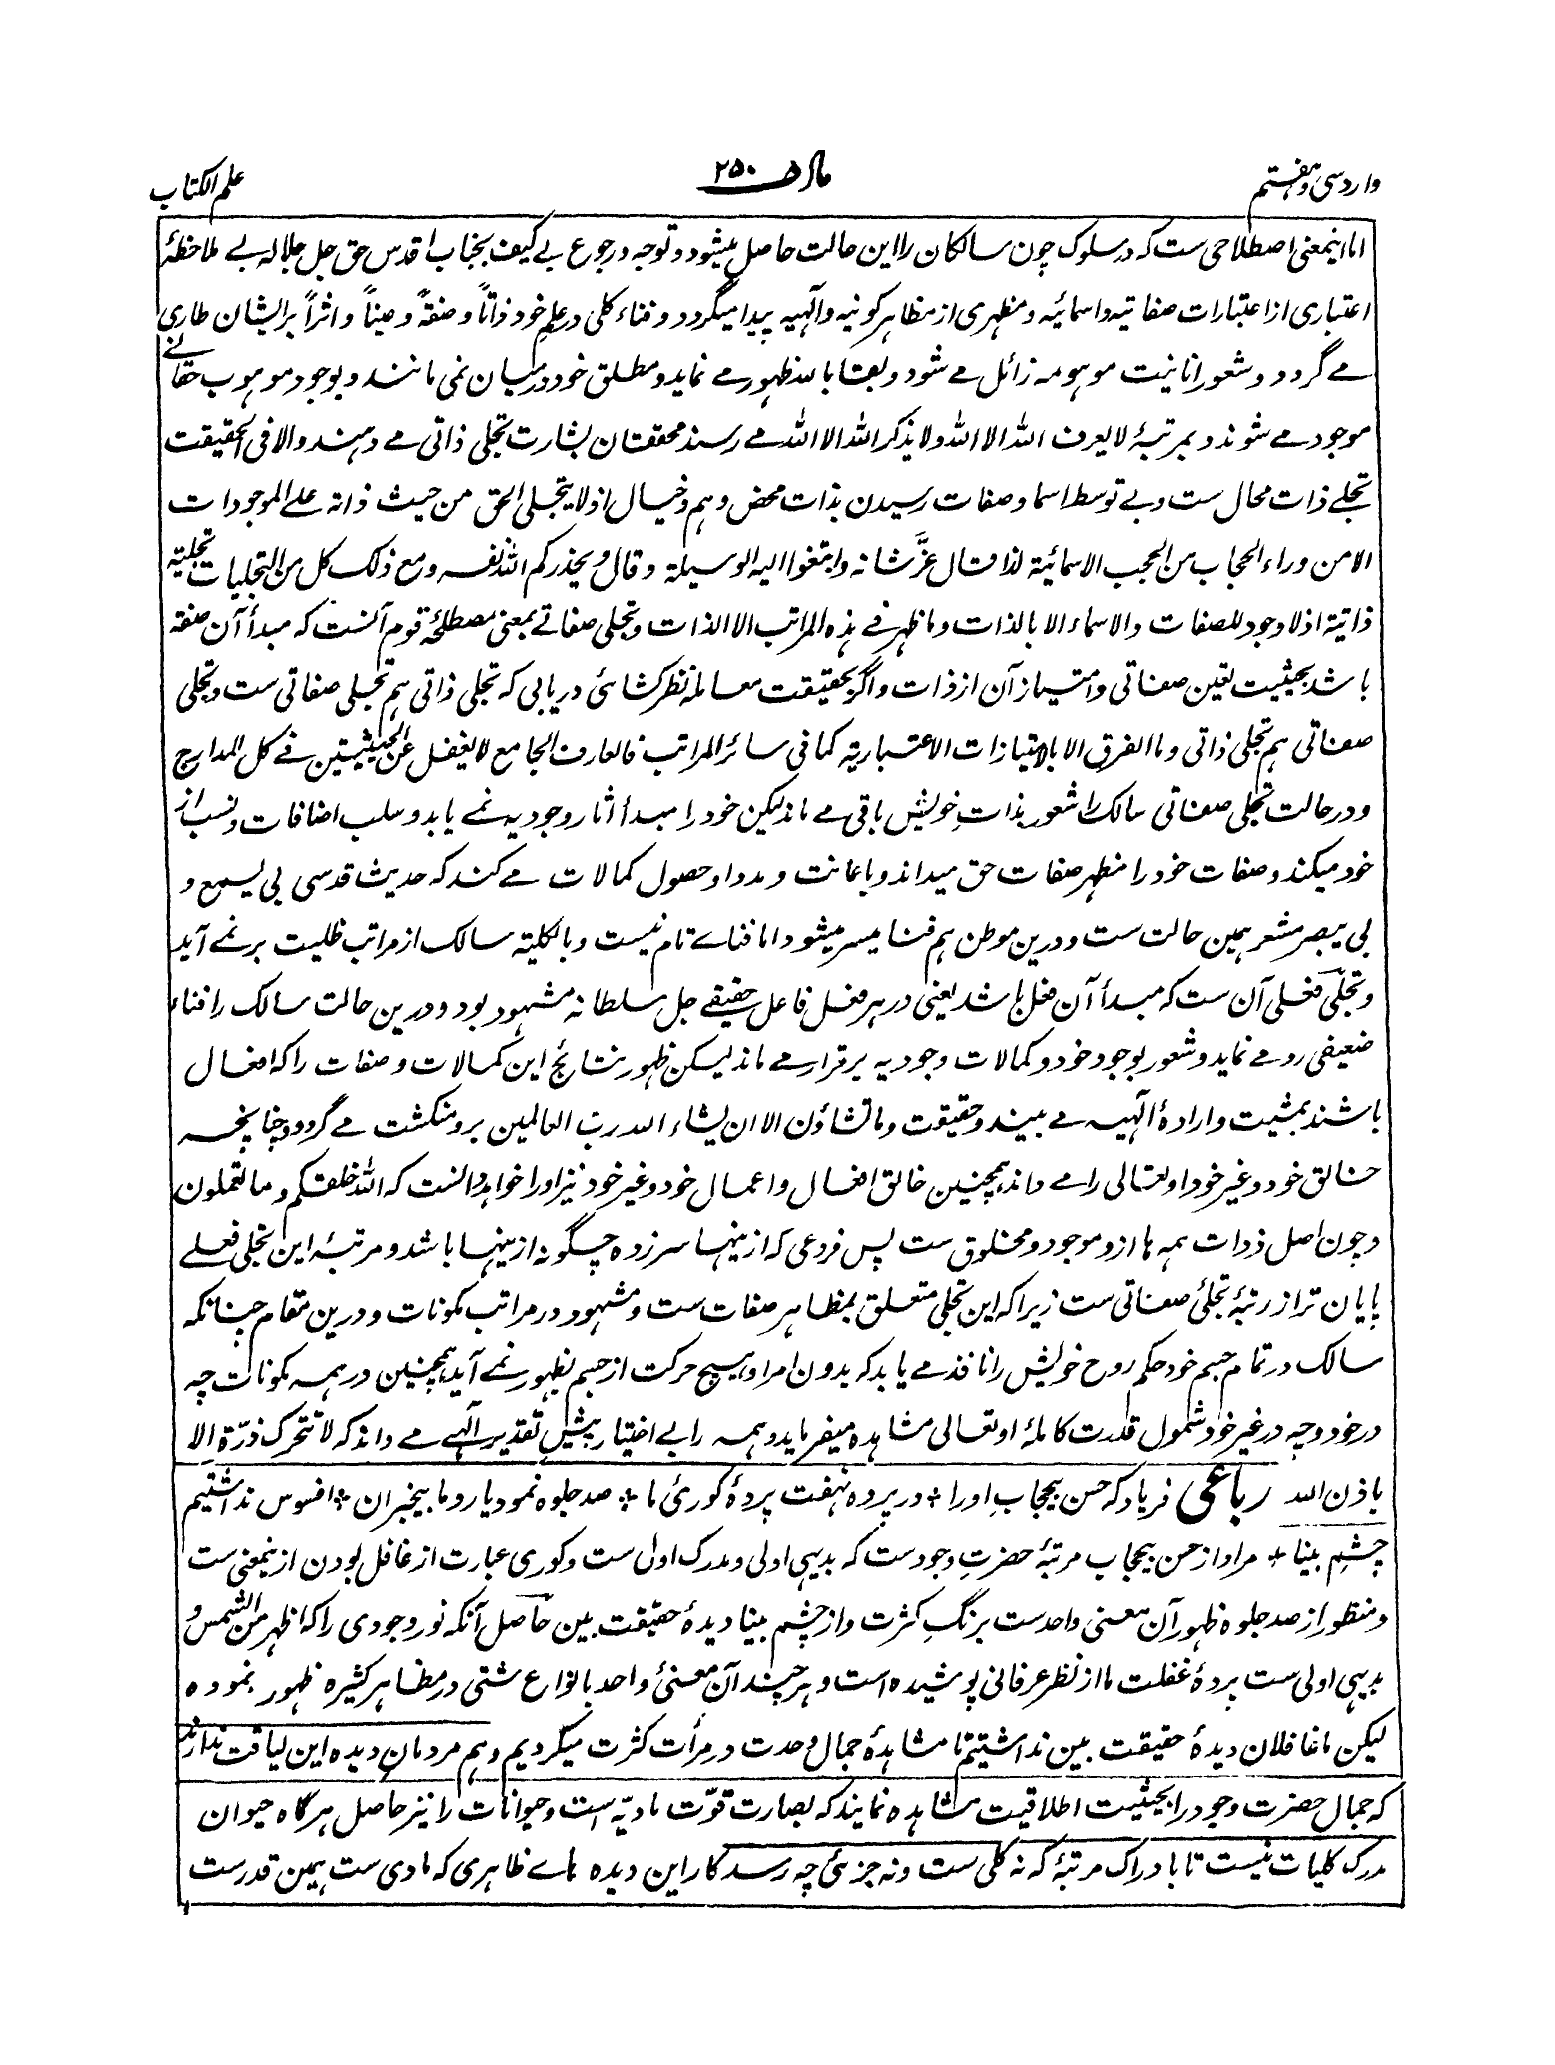 وارد سی و هفتم
۲۵۰
علم الکتاب
اما اینمعنی اصطلاحی ست که در سلوک چون سالکان را این حالت حاصل میشود و توجه و رجوع بے کیف بجناب اقدس حق جل جلاله بے ملاحظۀ
اعتباری از اعتبارات صفاتیه و اسمائیه و مظهری از مظاهر کونیه و آلهیه پیدا میگردد و فناء کلی در علم خود ذاتاً و صفتهً و عیناً و اثراً بر ایشان طاری
مے گردد و شعور انانیت موهومه زائل مے شود و بقا بالله ظهور مے نماید و مطلق خود در میان نمی مانند و بوجود موهوب حقانے
موجود مے شوند و بمرتبۀ لا یعرف الله الا الله و لا یذکر الله الا الله مے رسند محققان بشارت تجلی ذاتی مے دهند و الا فی الحقیقت
تجلے ذات محال ست و بے توسط اسما و صفات رسیدن بذات محض وهم و خیال اذ لا یتجلی الحق من حیث ذاته علے الموجودات
الا من وراء الحجاب من الحجب الاسمائیة لذا قال عزّ شانه و ابتغوا الیه الوسیلة و قال و یحذرکم الله نفسه و مع ذلک کل من التجلیات تجلیته
ذاتیة اذ لا وجود للصفات و الاسماء الا بالذات و ما ظهر فے هذه المراتب الا الذات و تجلی صفاتے بمعنی مصطلحۀ قوم آنست که مبدأ آن صفة
باشد بحیثیت تعین صفاتی و امتیاز آن از ذات و اگر بحقیقت معامله نظر کشائی دریابی که تجلی ذاتی هم تجلی صفاتی ست و تجلی
صفاتی هم تجلی ذاتی و ما الفرق الا بالامتیازات الاعتباریة کما فی سائر المراتب فالعارف الجامع لا یغفل عن الحیثیتین فے کل المدارج
و در حالت تجلی صفاتی سالک را شعور بذاتِ خویش باقی مے ماند لیکن خود را مبدأ آثار وجودیه نمے یابد و سلب اضافات و نسب از
خود میکند و صفات خود را مظهر صفات حق میداند و باعانت و مدد او حصول کمالات مے کند که حدیث قدسی بی یسمع و
بی یبصر مشعر همین حالت ست و درین موطن هم فنا میسر میشود اما فناے تام نیست و بالکلیته سالک از مراتب ظلیت بر نمے آید
و تجلّی فعلی آن ست که مبدأ آن فعل باشد یعنی در هر فعل فاعل حقیقے جل سلطانه مشهود بود و درین حالت سالک را فناء
ضعیفی رو مے نماید و شعور بوجود خود و کمالات وجودیه برقرار مے ماند لیکن ظهور نتائج این کمالات و صفات را که افعال
باشند بمشیت و ارادۀ آلهیه مے بیند و حقیقت و ما تشاؤن الا ان یشاء الله رب العالمین برو منکشف مے گردد و چنانچه
خالق خود و غیر خود او تعالی را مے داند همچنین خالق افعال و اعمال خود و غیر خود نیز او را خواهد دانست که الله خلقکم و ما تعملون
و چون اصل ذوات همه ها ازو موجود و مخلوق ست پس فروعی که از ینها سرزده چگونه از ینها باشد و مرتبۀ این تجلی فعلے
پایان تر از رتبۀ تجلئ صفاتی ست زیرا که این تجلی متعلق بمظاهر صفات ست و مشهود در مراتب مکونات و درین مقام چنانکه
سالک در تمام جسم خود حکم روح خویش را نافذ مے یابد که بدون امر او هیچ حرکت از جسم بظهور نمے آید همچنین در همه مکونات چه
در خود و چه در غیر خود شمول قدرت کاملۀ او تعالی مشاهده میفرماید و همه را بے اختیار پیش تقدیر آلهے مے داند که لا تتحرک ذرّة الا
باذن الله رباعی فریاد که حسن بیحجابِ او را * در پرده نهفت پردۀ کورئ ما * صد جلوه نمود یار و ما بیخبران * افسوس نداشتیم
چشمِ بینا * مراد از حسن بیحجاب مرتبۀ حضرتِ وجود ست که بدیهی اولی و مدرک اولی ست و کوری عبارت از غافل بودن از ینمعنی ست
و منظور از صد جلوه ظهور آن معنی واحد ست برنگِ کثرت و از چشم بینا دیدۀ حقیقت بین حاصل آنکه نور وجودی را که اظهر من الشمس و
بدیهی اولی ست پردۀ غفلت ما از نظر عرفانی پوشیده است و هر چند آن معنئ واحد بانواع شتی در مظاهر کثیره ظهور نموده
لیکن ما غافلان دیدۀ حقیقت بین نداشتیم تا مشاهدۀ جمال وحدت در مرأت کثرت میکردیم و هم مردمانِ دیده این لیاقت ندارند
که جمال حضرت وجود را بحیثیت اطلاقیت مشاهده نمایند که بصارت قوّت مادیّه است و حیوانات را نیز حاصل هرگاه حیوان
مدرک کلیات نیست تا بادراک مرتبۀ که نه کلی ست و نه جزئی چه رسد کار این دیده هاے ظاهری که مادی ست همین قدرست